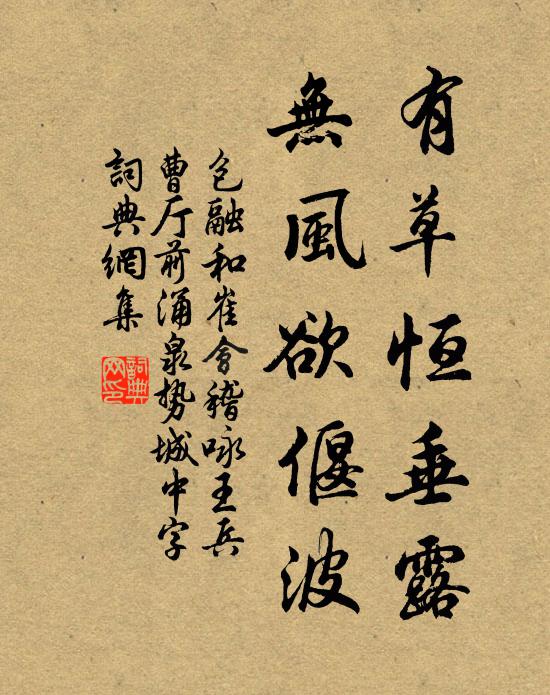 有草恒垂露
無風欲偃波
包融和崔會稽咏王兵
曹厅前涌泉势城中字
詞典網集
詞典網印